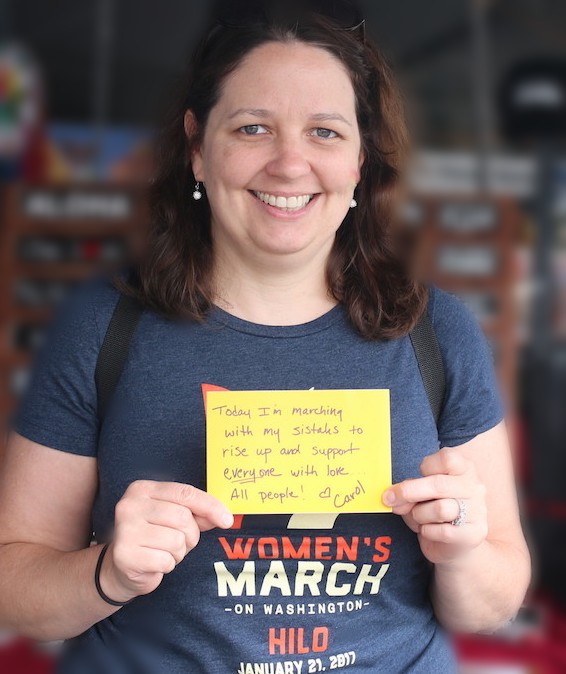 Today I'm marching
with my sistahs to
rise up and support
everyone with love...
All people! ♡ Carol
WOMEN'S
MARCH
-ON WASHINGTON-
HILO
JANUARY 21, 2017